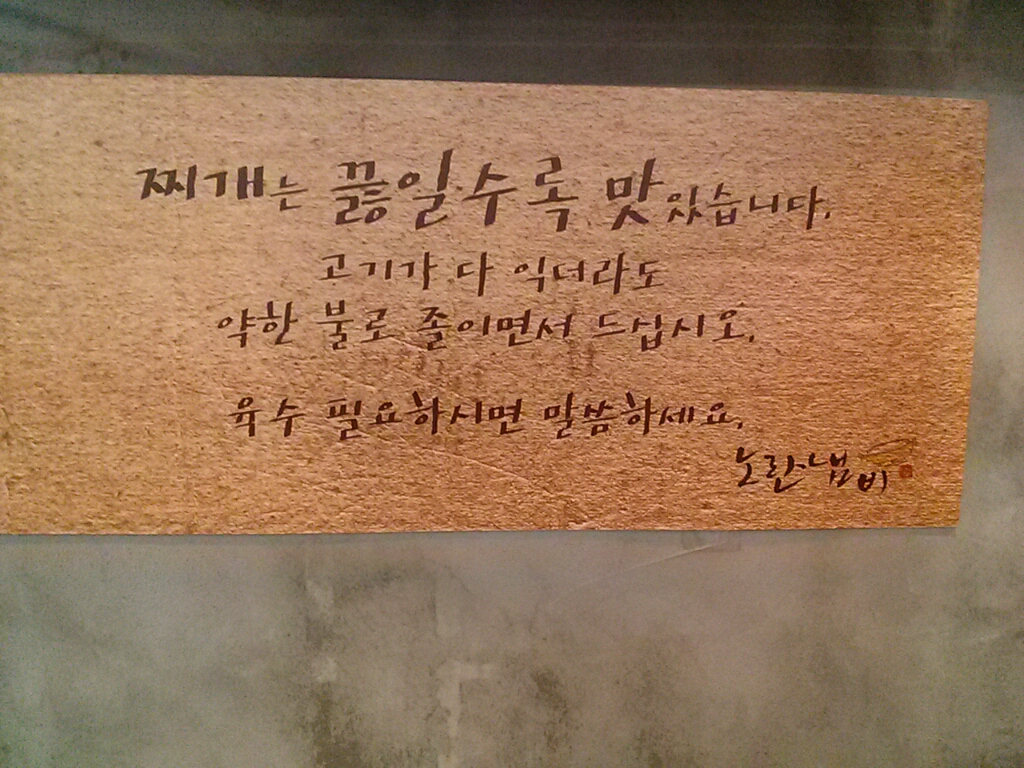 찌개는 끓일수록 맛있습니다.
고기가 다 익더라도
약한 불로 졸이면서 드십시오.
육수 필요하시면 말씀하세요.
노란냄비